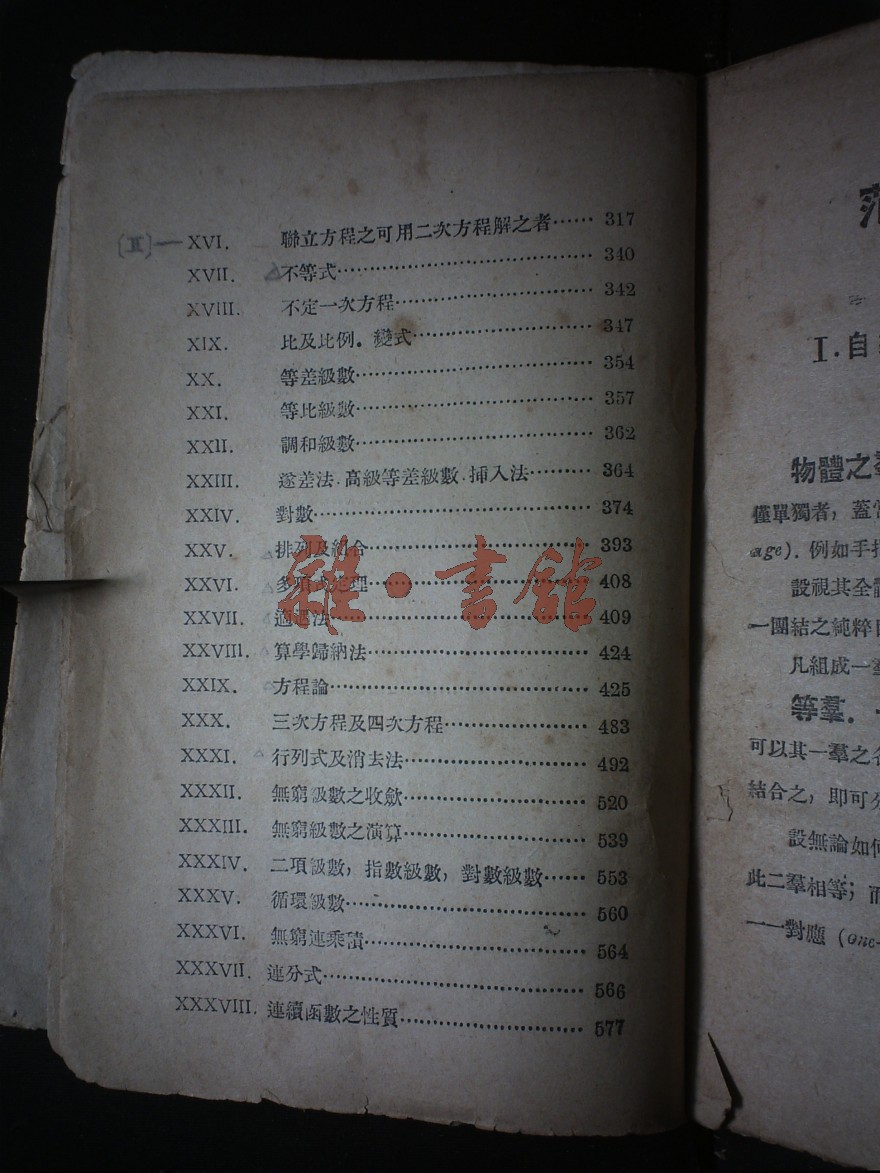 [II]— XVI. 聯立方程之可用二次方程解之者…… 317
XVII. 不等式…… 340
XVIII. 不定一次方程…… 342
XIX. 比及比例。變式…… 347
XX. 等差級數…… 354
XXI. 等比級數…… 357
XXII. 調和級數…… 362
XXIII. 遞差法.高級等差級數.挿入法…… 364
XXIV. 對數…… 374
XXV. 排列及組合…… 393
XXVI. 多項式定理…… 408
XXVII. 適遇法…… 409
XXVIII. 算學歸納法…… 424
XXIX. 方程論…… 425
XXX. 三次方程及四次方程…… 483
XXXI. 行列式及消去法…… 492
XXXII. 無窮級數之收歛…… 520
XXXIII. 無窮級數之演算…… 539
XXXIV. 二項級數，指數級數，對數級數…… 553
XXXV. 循環級數…… 560
XXXVI. 無窮連乘積…… 564
XXXVII. 連分式…… 566
XXXVIII. 連續函數之性質…… 577
雜·書館
I.自
物體之羣
僅單獨者，蓋
age). 例如手
設視其全
一團結之純粹
凡組成一
等羣.
可以其一羣之
結合之，即可
設無論如
此二羣相等；而
一一對應 (one-